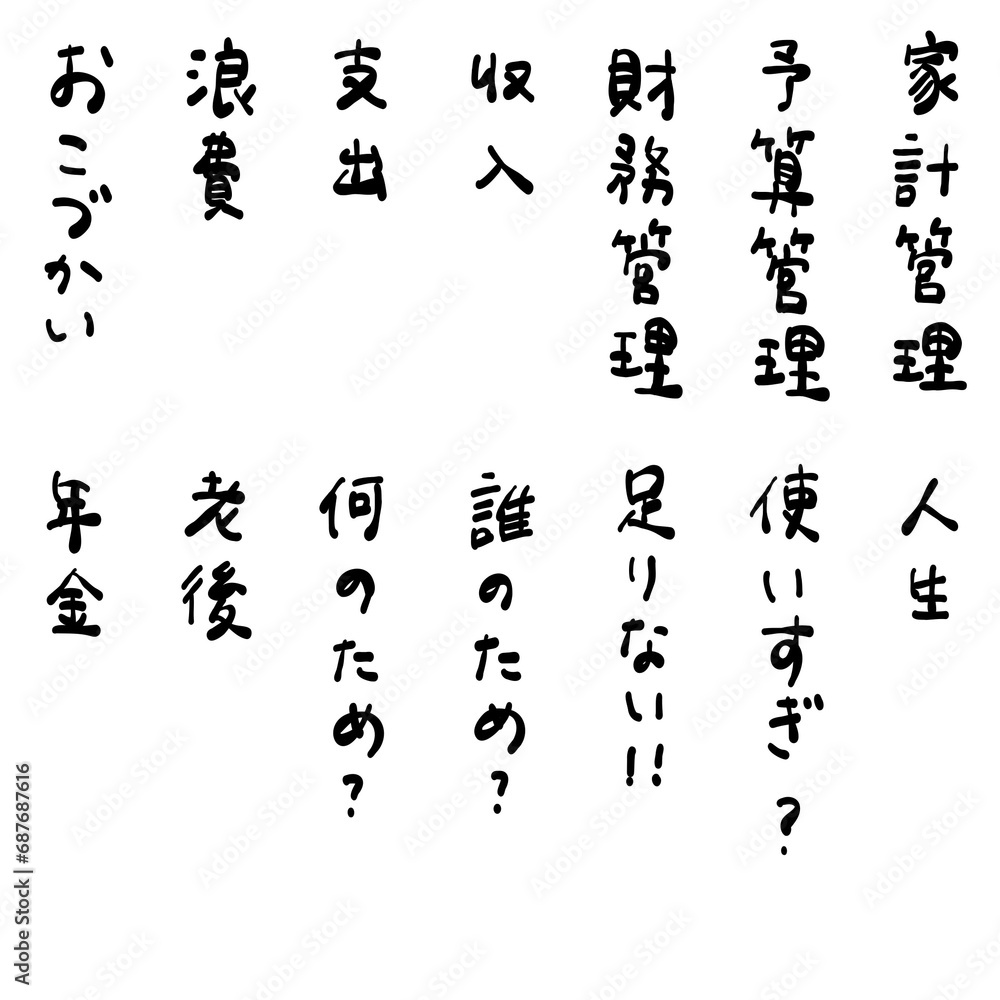 家計管理
予算管理
財務管理
収入
支出
浪費
おこづかい
人生
使いすぎ?
足りない!!
誰のため?
何のため?
老後
年金
Adobe Stock | #687687616